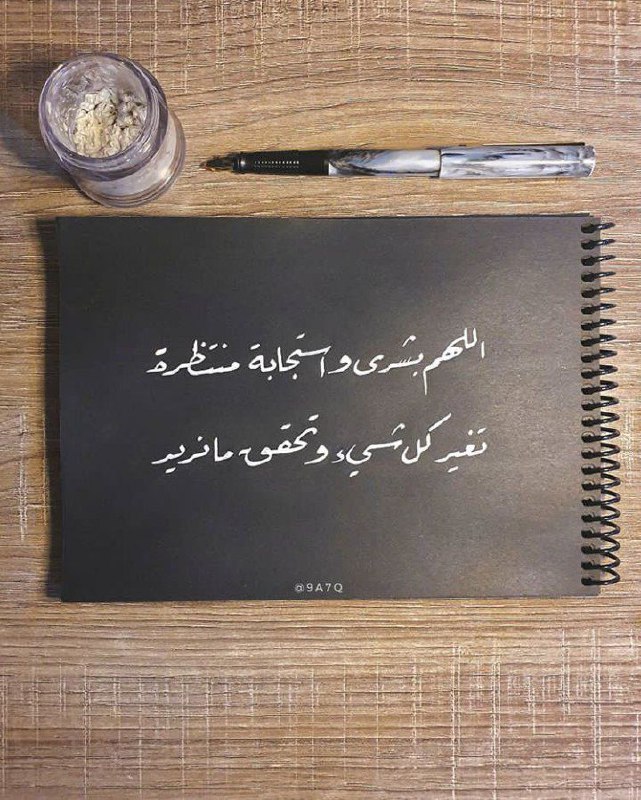 اللهم بشرى واستجابة منتظرة
تغير كل شيء وتحقق ما نريد
@9A7Q